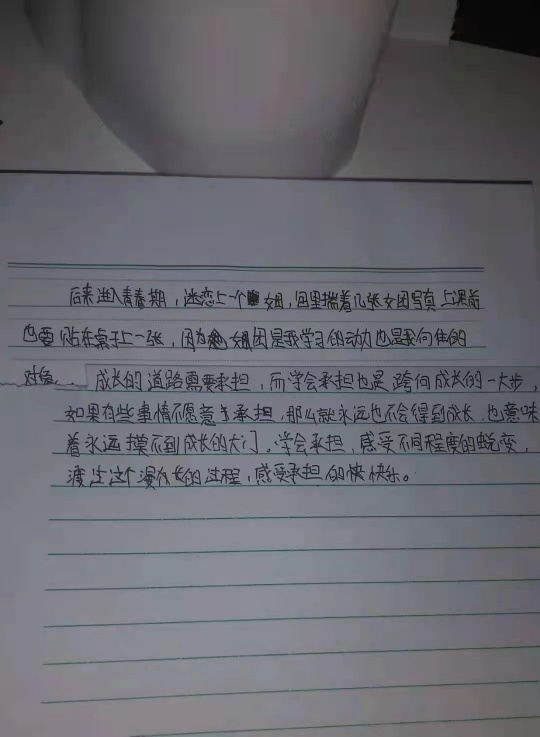 后来进入青春期，迷恋上一个女团，包里揣着几张女团写真上课前
也要贴在桌子上一张，因为女团是我学习的动力也是我向往的
对象。成长的道路需要承担，而学会承担也是跨向成长的一大步，
如果有些事情不愿意去承担，那么就永远也不会得到成长，也意味
着永远摸不到成长的大门。学会承担，感受不同程度的蜕变，
渡过这个漫长的过程，感受承担的快快乐。